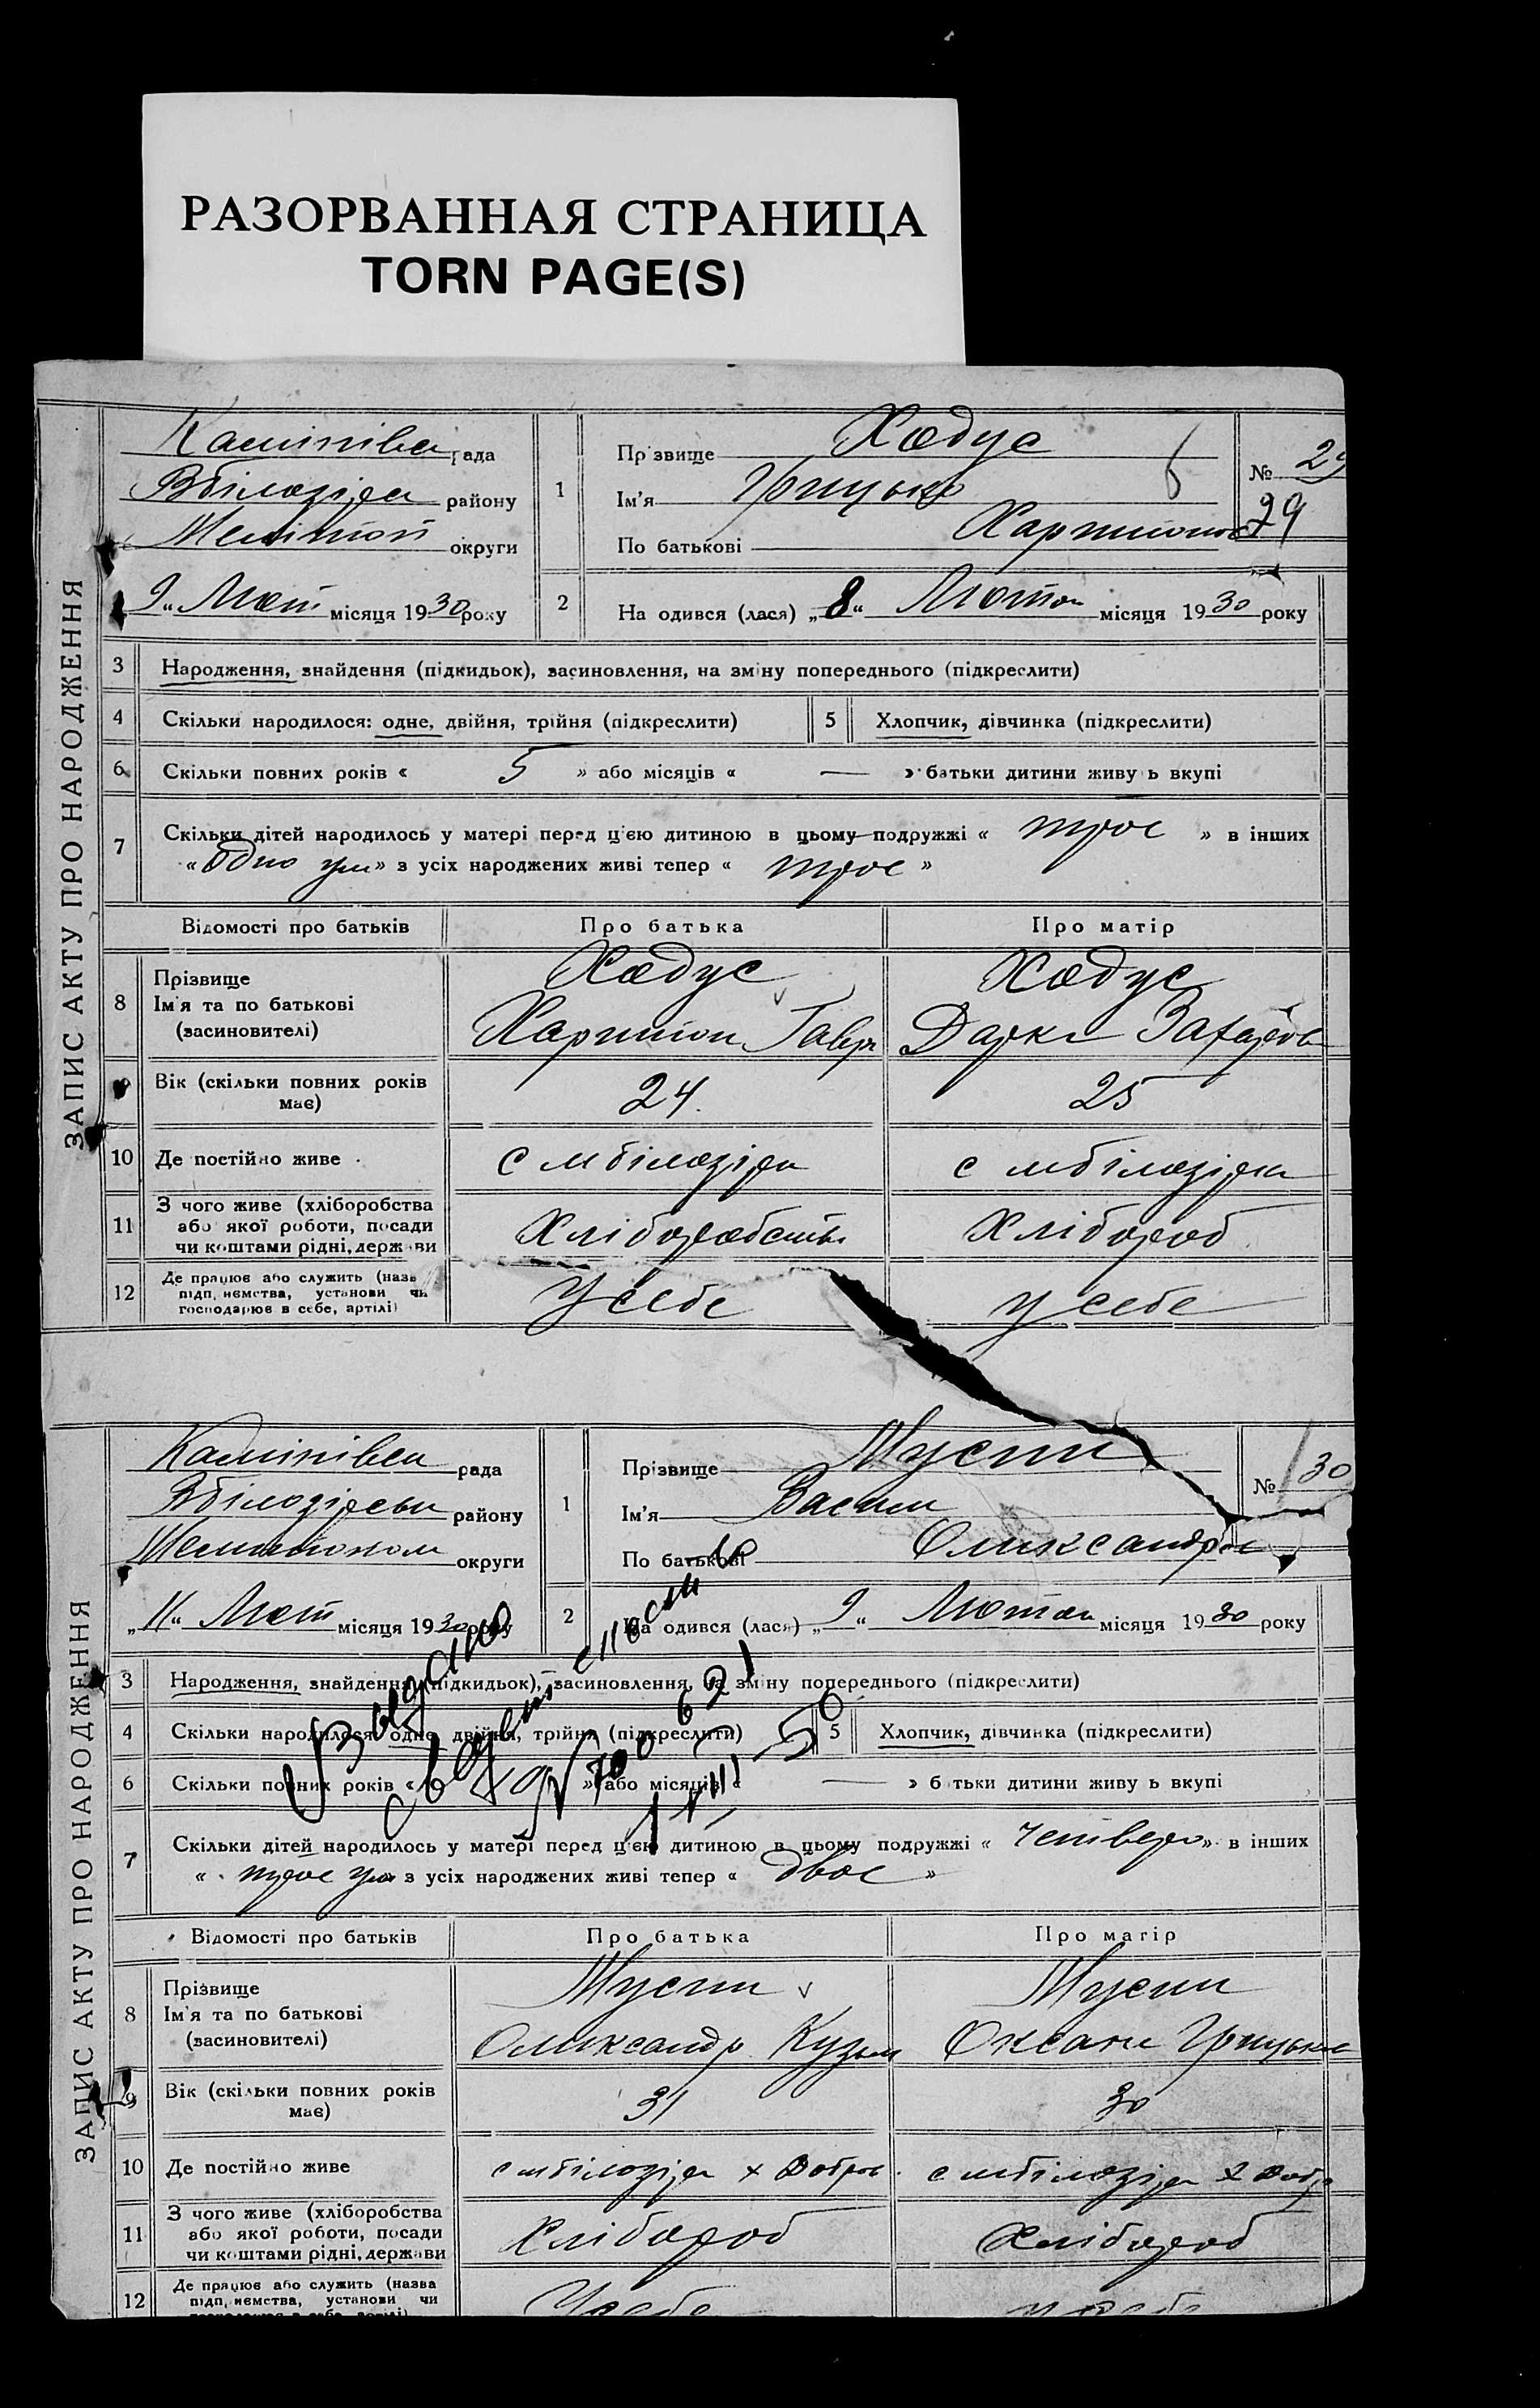 РАЗОРВАННАЯ СТРАНИЦА
TORN PAGE(S)
ЗАПИС АКТУ ПРО НАРОДЖЕННЯ
рада
району
округи
9 „ Лют місяця 1930 року
1
Прізвище Хадус
Ім'я Грицько
По батькові Харитонов
№ 29
29
2
На одився (лася) „ 8 “ Лютого місяця 1930 року
3 Народження, знайдення (підкидьок), засиновлення, на зміну попереднього (підкреслити)
4 Скільки народилося: одне, двійня, трійня (підкреслити) 5 Хлопчик, дівчинка (підкреслити)
6 Скільки повних років « 5 » або місяців « — » батьки дитини живу ь вкупі
7 Скільки дітей народилось у матері перед цією дитиною в цьому подружжі « троє » в інших
« одно ум » з усіх народжених живі тепер « троє »
Відомості про батьків Про батька Про матір
8 Прізвище Хадус Хадус
Ім'я та по батькові Харитон Гавр Дарка Захаров
(засиновителі)
9 Вік (скільки повних років має) 24. 25
10 Де постійно живе с мбілозірка с мбілозірка
11 З чого живе (хліборобства або якої роботи, посади чи коштами рідні, держави Хліборобств Хлібороб
12 Де працює або служить (назв підп, иємства, установи чи господарює в себе, артілі) У себе у себе
ЗАПИС АКТУ ПРО НАРОДЖЕННЯ
рада
району
округи
„ 11 “ Лют місяця 1930 року
1
Прізвище Мусти
Ім'я Васил
По батькові Олександр
№ 30
2
На одився (лася) „ 9 “ Лютого місяця 1930 року
3 Народження, знайдення (підкидьок), засиновлення, на зміну попереднього (підкреслити)
4 Скільки народилося: одне, двійня, трійня (підкреслити) 5 Хлопчик, дівчинка (підкреслити)
6 Скільки повних років « » або місяців « — » б тьки дитини живу ь вкупі
Выдано
7 Скільки дітей народилось у матері перед цією дитиною в цьому подружжі « Четверо » в інших
« троє ум » з усіх народжених живі тепер « двоє »
Відомості про батьків Про батька Про матір
8 Прізвище Мусти Мусти
Ім'я та по батькові Олександр Кузьм Оксана Грицьков
(засиновителі)
9 Вік (скільки повних років має) 31 30
10 Де постійно живе с мбілозірка х Добров с мбілозірка х Добр
11 З чого живе (хліборобства або якої роботи, посади чи коштами рідні, держави Хлібороб Хлібороб
12 Де працює або служить (назва підп, иємства, установи чи У себе у себе